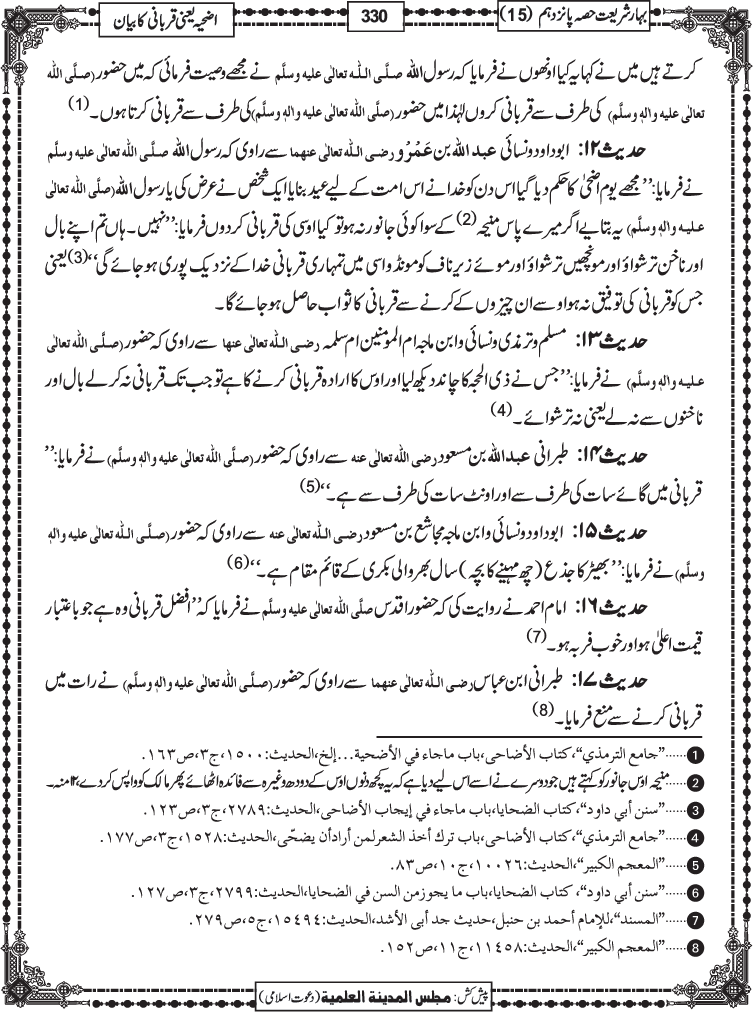 بہارِ شریعت حصہ پانزدہم (15)
330
اضحیہ یعنی قربانی کا بیان
کرتے ہیں میں نے کہا یہ کیا اونھوں نے فرمایا کہ رسول اللہ صلَّی اللہ تعالٰی علیہ وسلَّم نے مجھے وصیت فرمائی کہ میں حضور (صلَّی اللہ
تعالٰی علیہ والہٖ وسلَّم) کی طرف سے قربانی کروں لہٰذا میں حضور (صلَّی اللہ تعالٰی علیہ والہٖ وسلَّم) کی طرف سے قربانی کرتا ہوں۔(1)
حدیث ۱۲: ابوداود و نسائی عبد اللہ بن عَمْرْو رضی اللہ تعالٰی عنہما سے راوی کہ رسول اللہ صلَّی اللہ تعالٰی علیہ وسلَّم
نے فرمایا: ’’مجھے یوم اضحیٰ کا حکم دیا گیا اس دن کو خدا نے اس امت کے لیے عید بنایا ایک شخص نے عرض کی یارسول اللہ (صلَّی اللہ تعالٰی
علیہ والہٖ وسلَّم) یہ بتایے اگر میرے پاس منیحہ(2) کے سوا کوئی جانور نہ ہو تو کیا اوسی کی قربانی کردوں فرمایا: ’’نہیں۔ ہاں تم اپنے بال
اور ناخن ترشواؤ اور مونچھیں ترشواؤ اور موئے زیر ناف کو مونڈو اسی میں تمہاری قربانی خدا کے نزدیک پوری ہو جائے گی‘‘(3) یعنی
جس کو قربانی کی توفیق نہ ہو اوسے ان چیزوں کے کرنے سے قربانی کا ثواب حاصل ہو جائے گا۔
حدیث ۱۳: مسلم و ترمذی و نسائی و ابن ماجہ ام المومنین ام سلمہ رضی اللہ تعالٰی عنہا سے راوی کہ حضور (صلَّی اللہ تعالٰی
علیہ والہٖ وسلَّم) نے فرمایا: ’’جس نے ذی الحجہ کا چاند دیکھ لیا اور اوس کا ارادہ قربانی کرنے کا ہے تو جب تک قربانی نہ کرلے بال اور
ناخنوں سے نہ لے یعنی نہ ترشوائے۔(4)
حدیث ۱۴: طبرانی عبد اللہ بن مسعود رضی اللہ تعالٰی عنہ سے راوی کہ حضور (صلَّی اللہ تعالٰی علیہ والہٖ وسلَّم) نے فرمایا: ’’
قربانی میں گائے سات کی طرف سے اور اونٹ سات کی طرف سے ہے۔‘‘(5)
حدیث ۱۵: ابوداود و نسائی و ابن ماجہ مجاشع بن مسعود رضی اللہ تعالٰی عنہ سے راوی کہ حضور (صلَّی اللہ تعالٰی علیہ والہٖ
وسلَّم) نے فرمایا: ’’بھیڑ کا جذع (چھ مہینے کا بچہ) سال بھر والی بکری کے قائم مقام ہے۔‘‘(6)
حدیث ۱۶: امام احمد نے روایت کی کہ حضور اقدس صلَّی اللہ تعالٰی علیہ وسلَّم نے فرمایا کہ ’’افضل قربانی وہ ہے جو باعتبار
قیمت اعلیٰ ہو اور خوب فربہ ہو۔(7)
حدیث ۱۷: طبرانی ابن عباس رضی اللہ تعالٰی عنہما سے راوی کہ حضور (صلَّی اللہ تعالٰی علیہ والہٖ وسلَّم) نے رات میں
قربانی کرنے سے منع فرمایا۔(8)
1 ......’’جامع الترمذي‘‘،کتاب الأضاحی،باب ماجاء في الأضحیة...إلخ،الحدیث:۱۵۰۰،ج۳،ص۱۶۳.
2 ......منیحہ اوس جانور کو کہتے ہیں جو دوسرے نے اسے اس لیے دیا ہے کہ یہ کچھ دنوں اوس کے دودھ وغیرہ سے فائدہ اٹھائے پھر مالک کو واپس کر دے ۱۲ منہ۔
3 ......’’سنن أبي داود‘‘،کتاب الضحایا،باب ماجاء في إیجاب الأضاحی،الحدیث:۲۷۸۹،ج۳،ص۱۲۳.
4 ......’’جامع الترمذي‘‘،کتاب الأضاحی،باب ترك أخذ الشعرلمن أرادأن یضحّی،الحدیث:۱۵۲۸،ج۳،ص۱۷۷.
5 ......’’المعجم الکبیر‘‘،الحدیث:۱۰۰۲۶،ج۱۰،ص۸۳.
6 ......’’سنن أبي داود‘‘، کتاب الضحایا،باب ما یجوزمن السن في الضحایا،الحدیث:۲۷۹۹،ج۳،ص۱۲۷.
7 ......’’المسند‘‘،للإمام أحمد بن حنبل،حدیث جد أبی الأشد،الحدیث:۱۵۴۹۴،ج۵،ص۲۷۹.
8 ......’’المعجم الکبیر‘‘،الحدیث:۱۱۴۵۸،ج۱۱،ص۱۵۲.
پیش کش: مجلس المدينة العلمية (دعوت اسلامی)